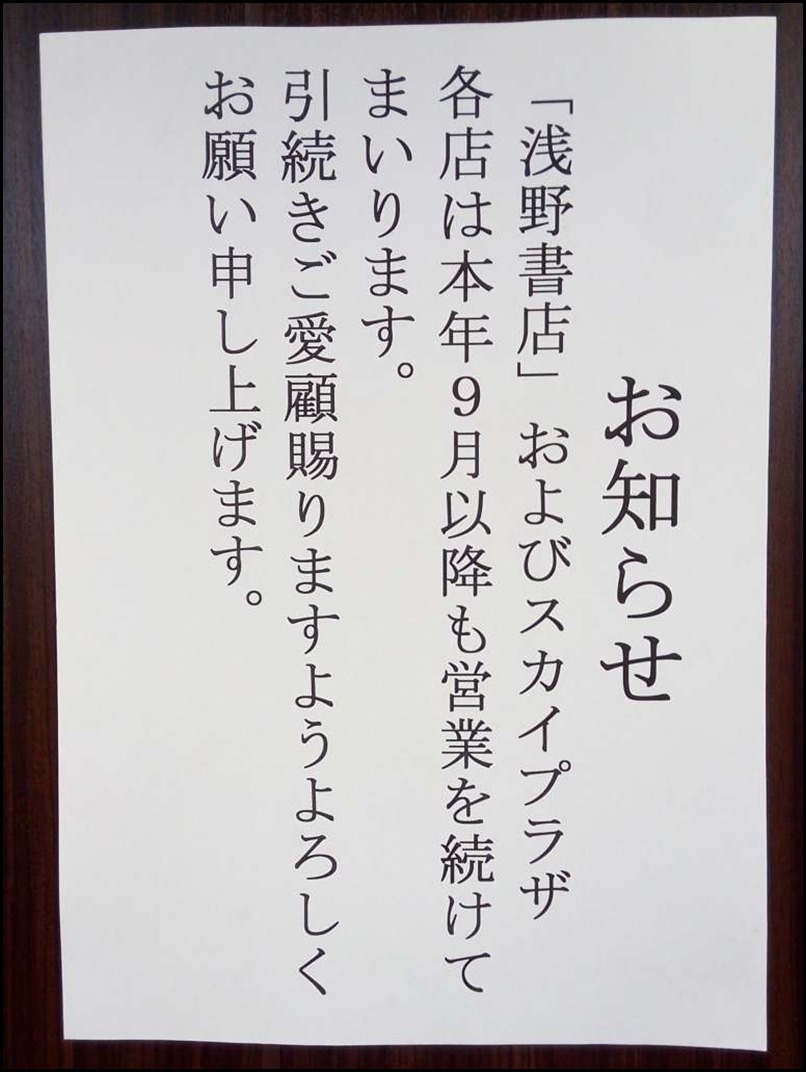 お知らせ
「浅野書店」およびスカイプラザ
各店は本年９月以降も営業を続けて
まいります。
引続きご愛顧賜りますようよろしく
お願い申し上げます。